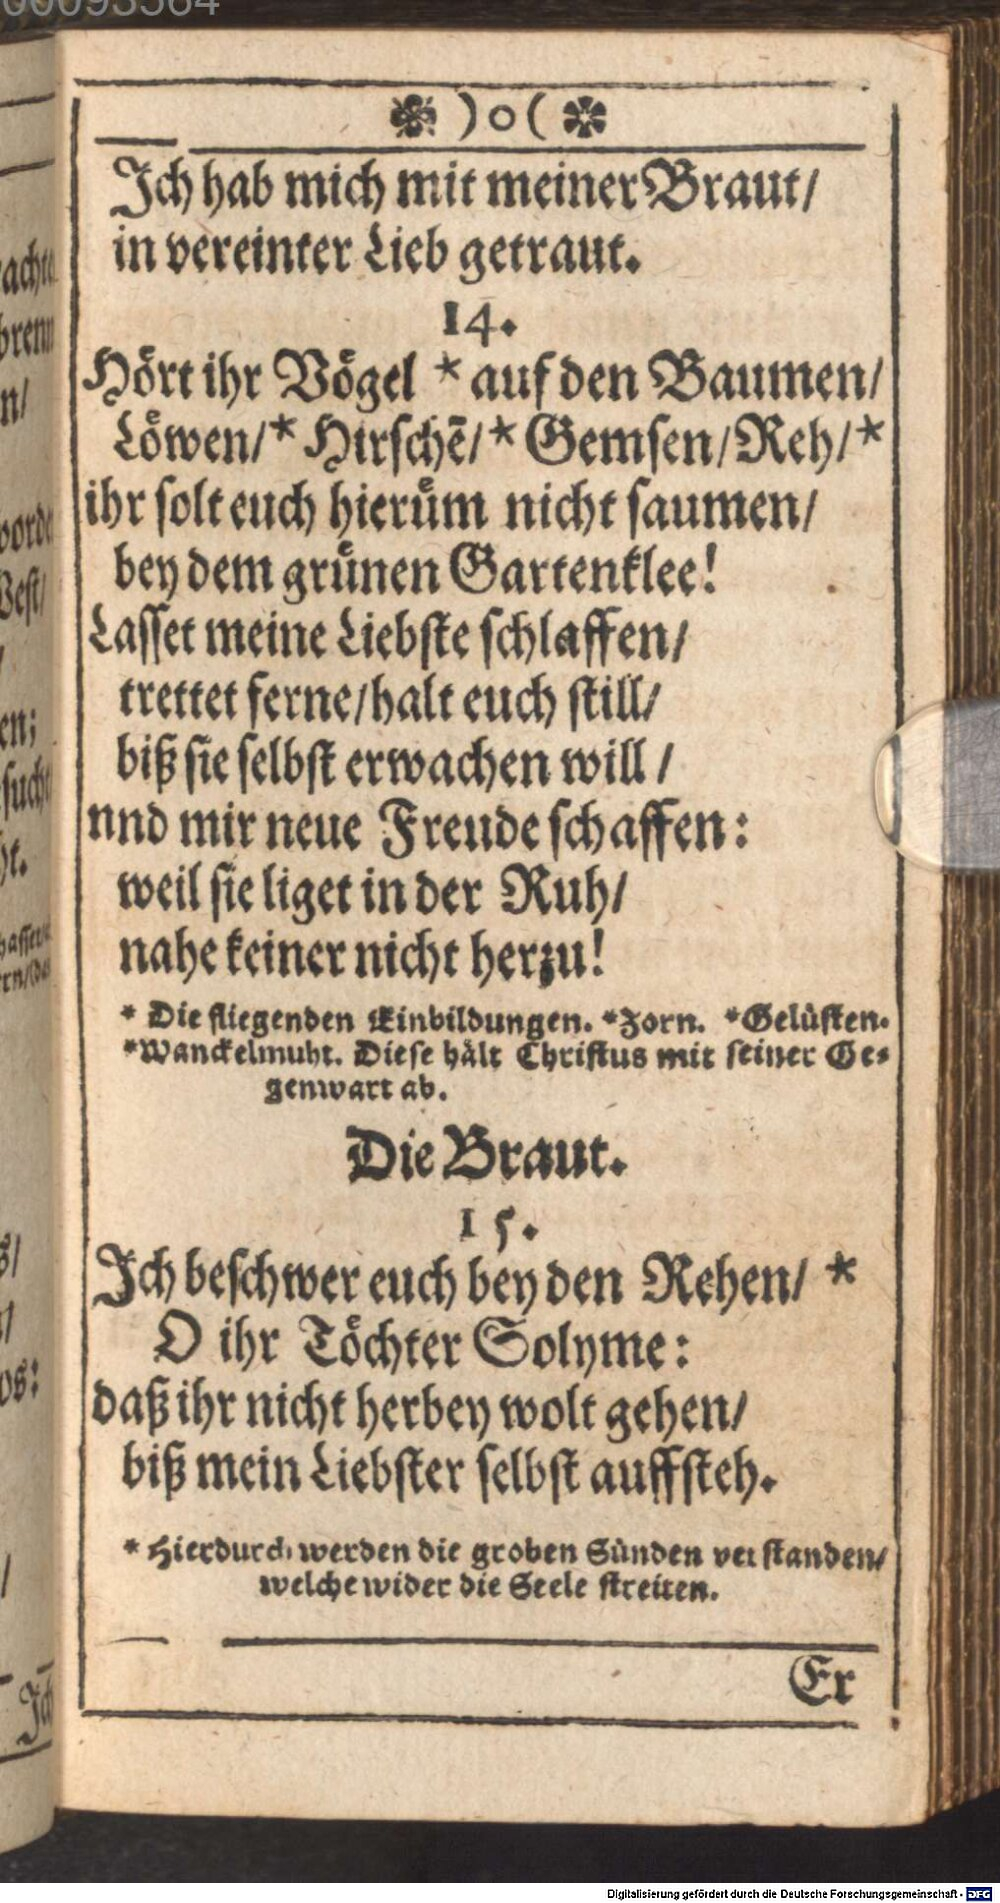 ❀ ) o ( ❀
Ich hab mich mit meiner Braut/
in vereinter Lieb getraut.
14.
Hoͤrt ihr Voͤgel * auf den Baumen/
Loͤwen/* Hirschē/* Gemsen/Reh/*
ihr solt euch hieruͤm nicht saumen/
bey dem gruͤnen Gartenklee!
Lasset meine Liebste schlaffen/
trettet ferne/halt euch still/
biß sie selbst erwachen will /
nnd mir neue Freude schaffen:
weil sie liget in der Ruh/
nahe keiner nicht herzu!
* Die fliegenden Einbildungen. *Zorn. *Gelüsten.
*Wanckelmuht. Diese hält Christus mit seiner Ge-
genwart ab.
Die Braut.
15.
Ich beschwer euch bey den Rehen/ *
O ihr Toͤchter Solyme:
daß ihr nicht herbey wolt gehen/
biß mein Liebster selbst auffsteh.
* Hierdurch werden die groben Sünden verstanden/
welche wider die Seele streiten.
Er
Digitalisierung gefördert durch die Deutsche Forschungsgemeinschaft - DFG